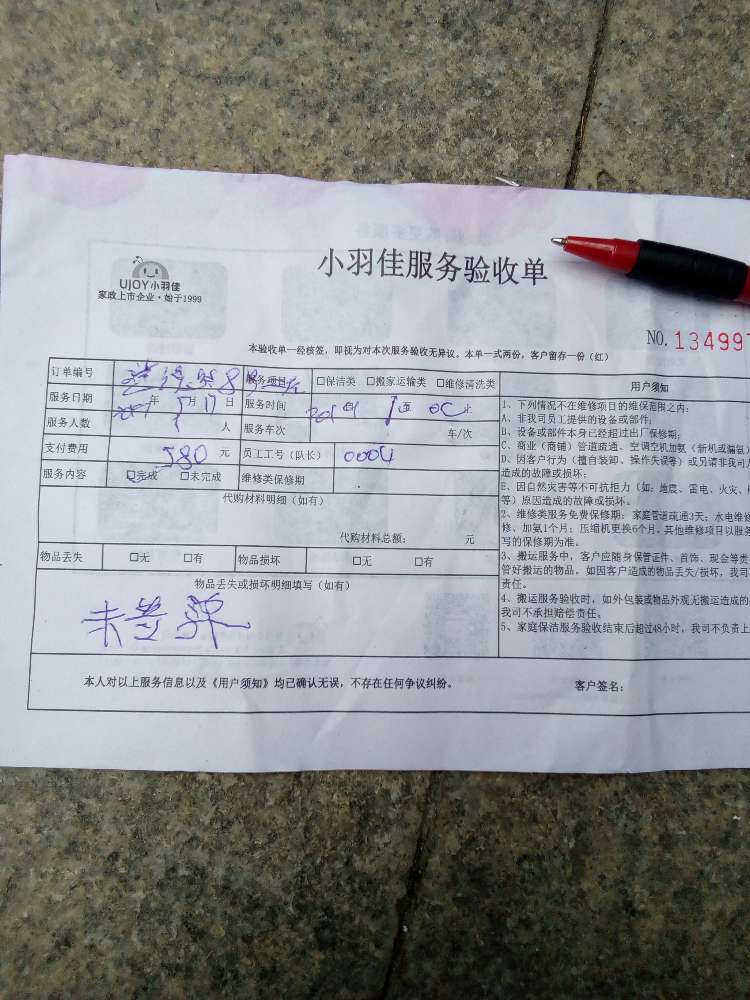 UJOY小羽佳
家政上市企业·始于1999
小羽佳服务验收单
NO. 134997
本验收单一经核签，即视为对本次服务验收无异议。本单一式两份，客户留存一份（红）
订单编号 服务项目 □保洁类 □搬家运输类 □维修清洗类
服务日期 年 5月17日 服务时间 止
服务人数 1 人 服务车次 车/次
支付费用 580 元 员工工号（队长）
服务内容 □完成 □未完成 维修类保修期
代购材料明细（如有）
代购材料总额： 元
物品丢失 □无 □有 物品损坏 □无 □有
物品丢失或损坏明细填写（如有）
用户须知
1、下列情况不在维修项目的维保范围之内：
A、非我司员工提供的设备或部件；
B、设备或部件本身已经超过出厂保修期；
C、商业（商铺）管道疏通、空调空机加氨（新机或漏氨）
D、因客户行为（擅自装卸、操作失误等）或另请非我司人
造成的故障或损坏；
E、因自然灾害等不可抗拒力（如：地震、雷电、火灾、
等）原因造成的故障或损坏。
2、维修类服务免费保修期：家庭管道疏通3天；水电维
修、加氨1个月；压缩机更换6个月。其他维修项目以服务
写的保修期为准。
3、搬运服务中，客户应随身保管证件、首饰、现金等贵
管好搬运的物品。如因客户造成的物品丢失/损坏，我司
责任。
4、搬运服务验收时，如外包装或物品外观无搬运造成的
我司不承担赔偿责任。
5、家庭保洁服务验收结束后超过48小时，我司不负责上
本人对以上服务信息以及《用户须知》均已确认无误，不存在任何争议纠纷。 客户签名：